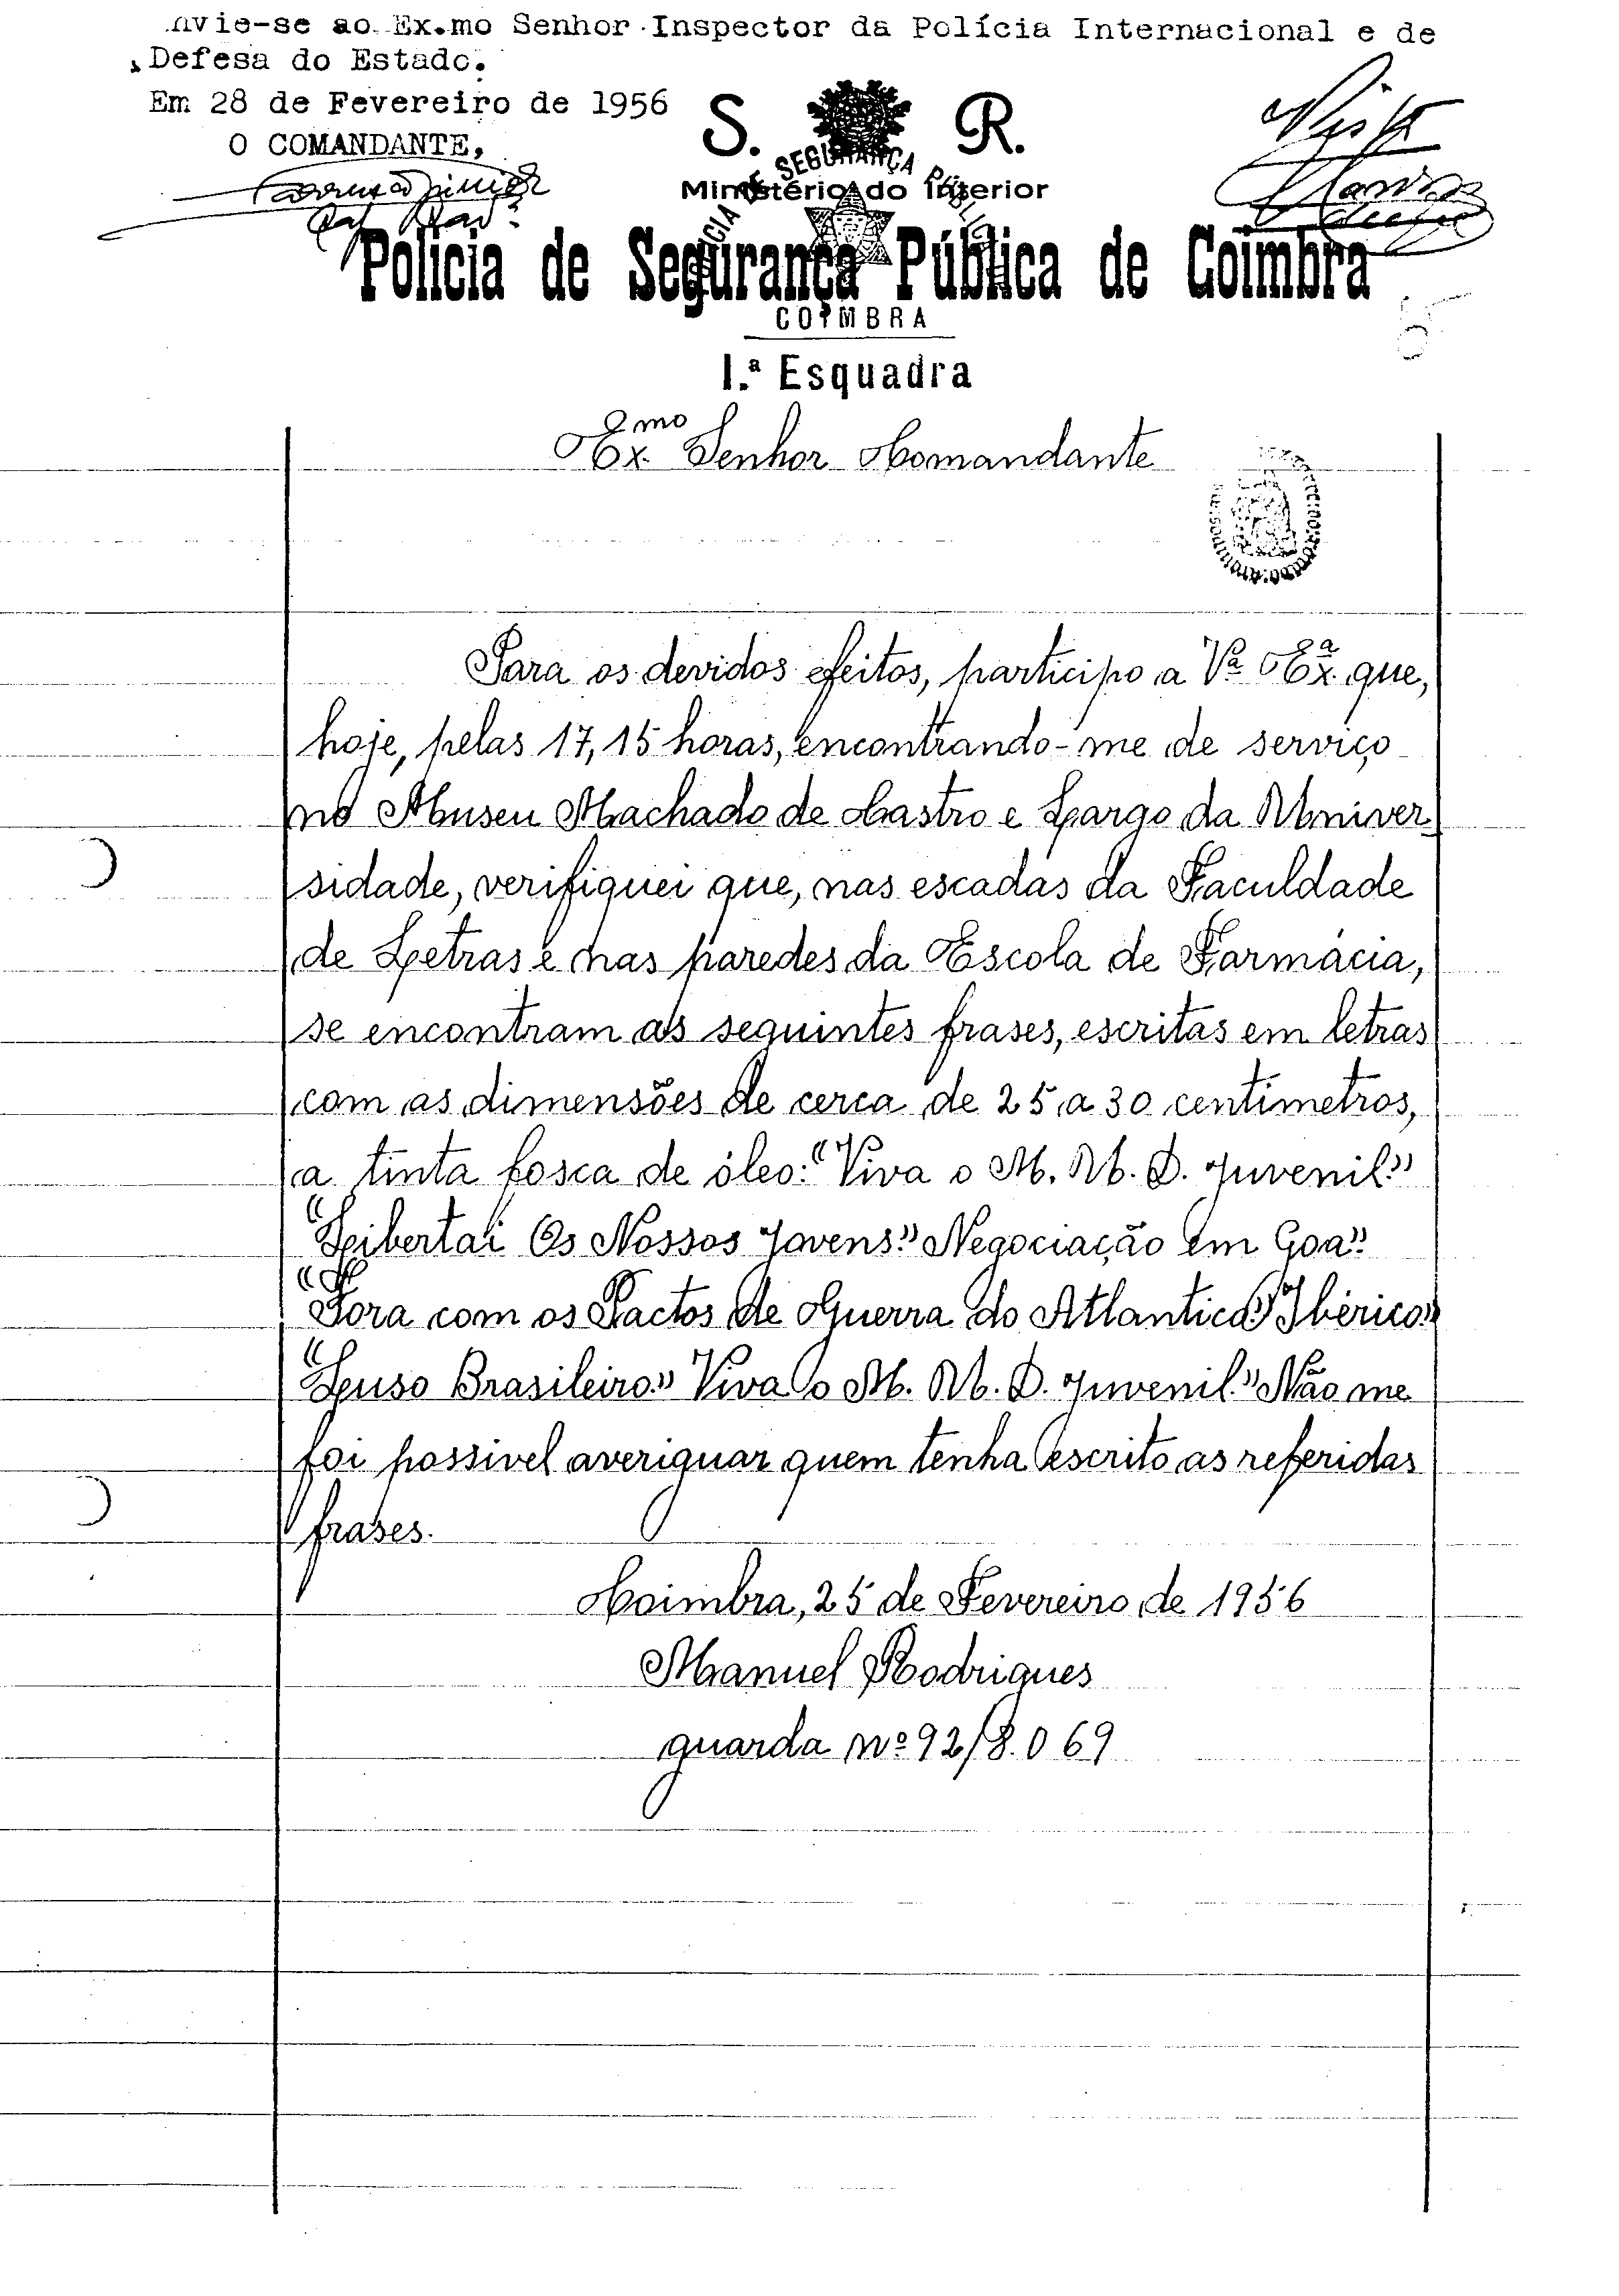 nvie-se ao Ex.mo Senhor Inspector da Polícia Internacional e de
Defesa do Estado.
Em 28 de Fevereiro de 1956
O COMANDANTE,
S. R.
Visto
Ministério do Interior
Polícia de Segurança Pública de Coimbra
COIMBRA
1.ª Esquadra
Exmo Senhor Comandante
Para os devidos efeitos, participo a Vª Exª que,
hoje, pelas 17,15 horas, encontrando-me de serviço
no Museu Machado de Castro e Largo da Univer-
sidade, verifiquei que, nas escadas da Faculdade
de Letras e nas paredes da Escola de Farmácia,
se encontram as seguintes frases, escritas em letras
com as dimensões de cerca de 25 a 30 centimetros,
a tinta fosca de óleo: "Viva o M. U. D. Juvenil"
"Libertai Os Nossos Jovens" Negociação Em Goa"
"Fora com os Pactos de Guerra do Atlantico" Ibérico"
"Luso Brasileiro" Viva o M. U. D. Juvenil" Não me
foi possivel averiguar quem tenha escrito as referidas
frases.
Coimbra, 25 de Fevereiro de 1956
Manuel Rodrigues
guarda nº 92/8.069